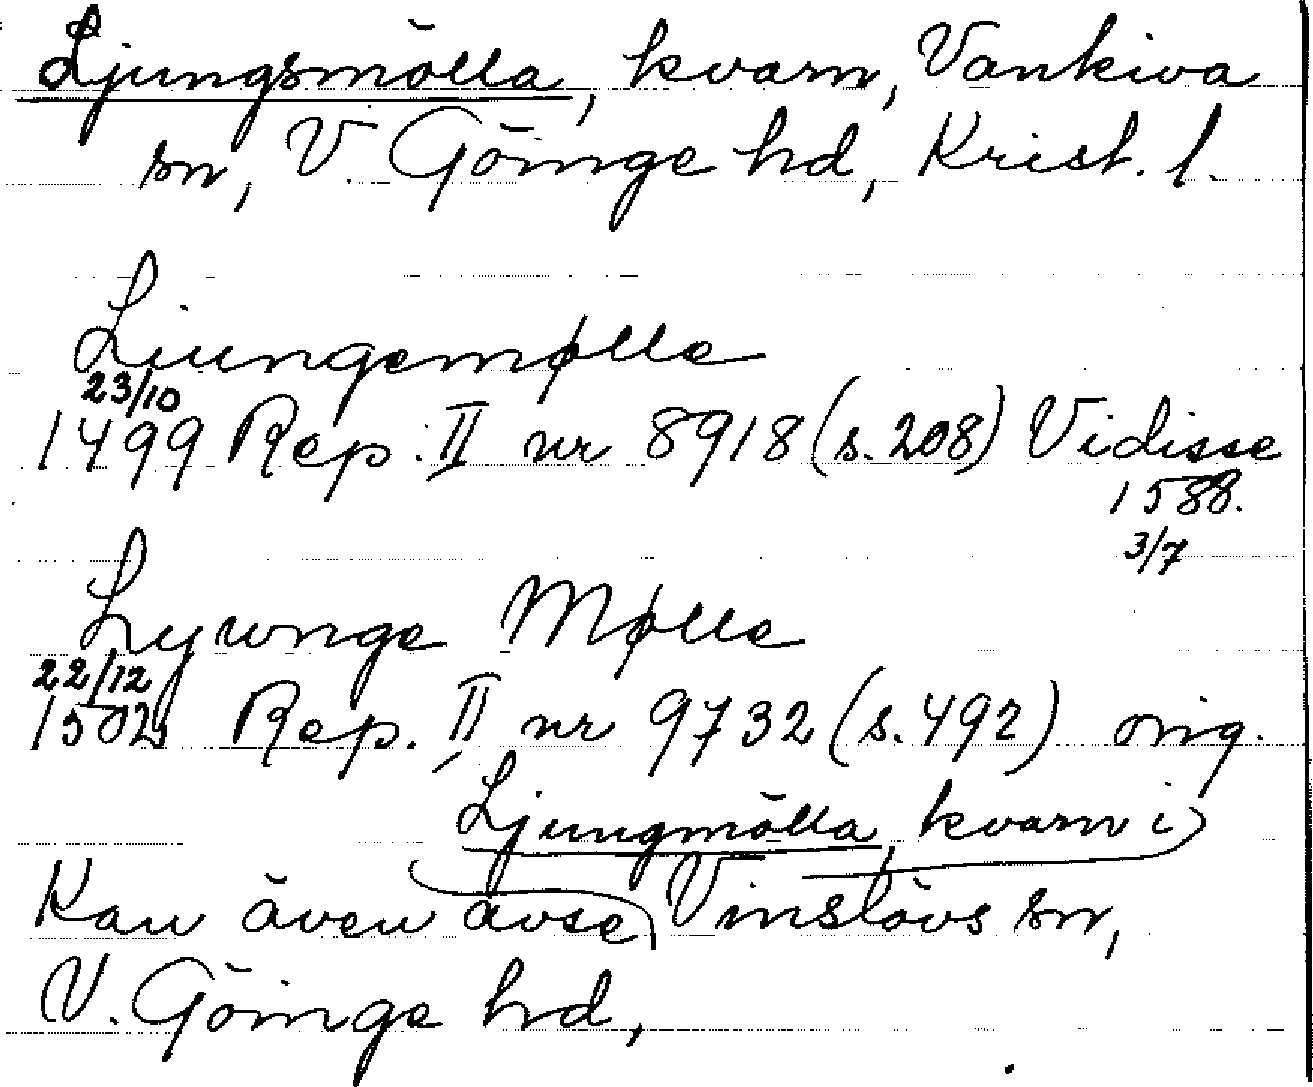 Ljungsmölla, kvarn, Vankiva
sn, V. Göinge hd, Krist. l.
Liungemølle
23/10
1499 Rep. II nr 8918 (s. 208) Vidisse
1588.
3/7
Lyunge Mølle
22/12
1502 Rep. II nr 9732 (s. 492) orig.
Ljungmölla, kvarn i
Kan även avse Vinslövs sn,
V. Göinge hd,